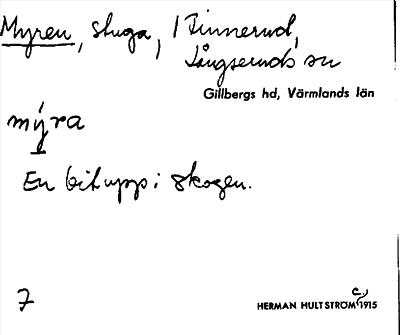 Myren, stuga, / Finnerud,
Långseruds sn
Gillbergs hd, Värmlands län
mýra
En bit upp i skogen.
7
HERMAN HULTSTRÖM c., 1915